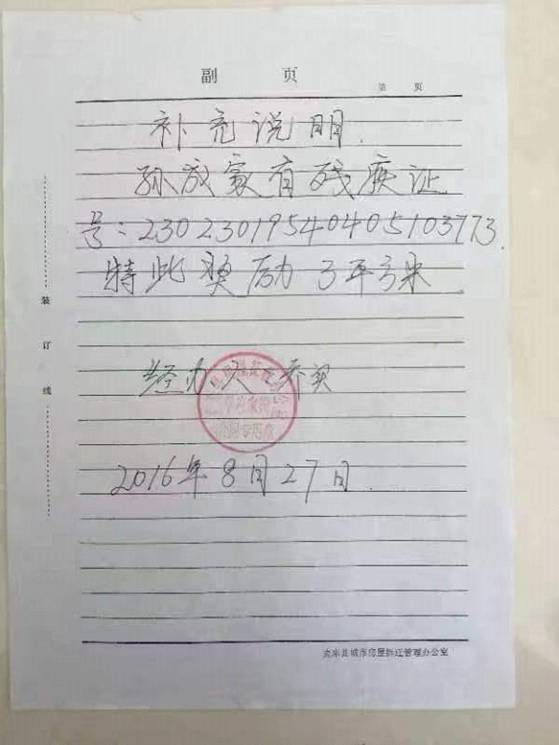 副 页
第 页
补充说明.
孙成家有残疾证
号:23023019540405103773.
特此奖励3平方米
经办人
2016年8月27日.
装订线
克东县城市房屋拆迁管理办公室